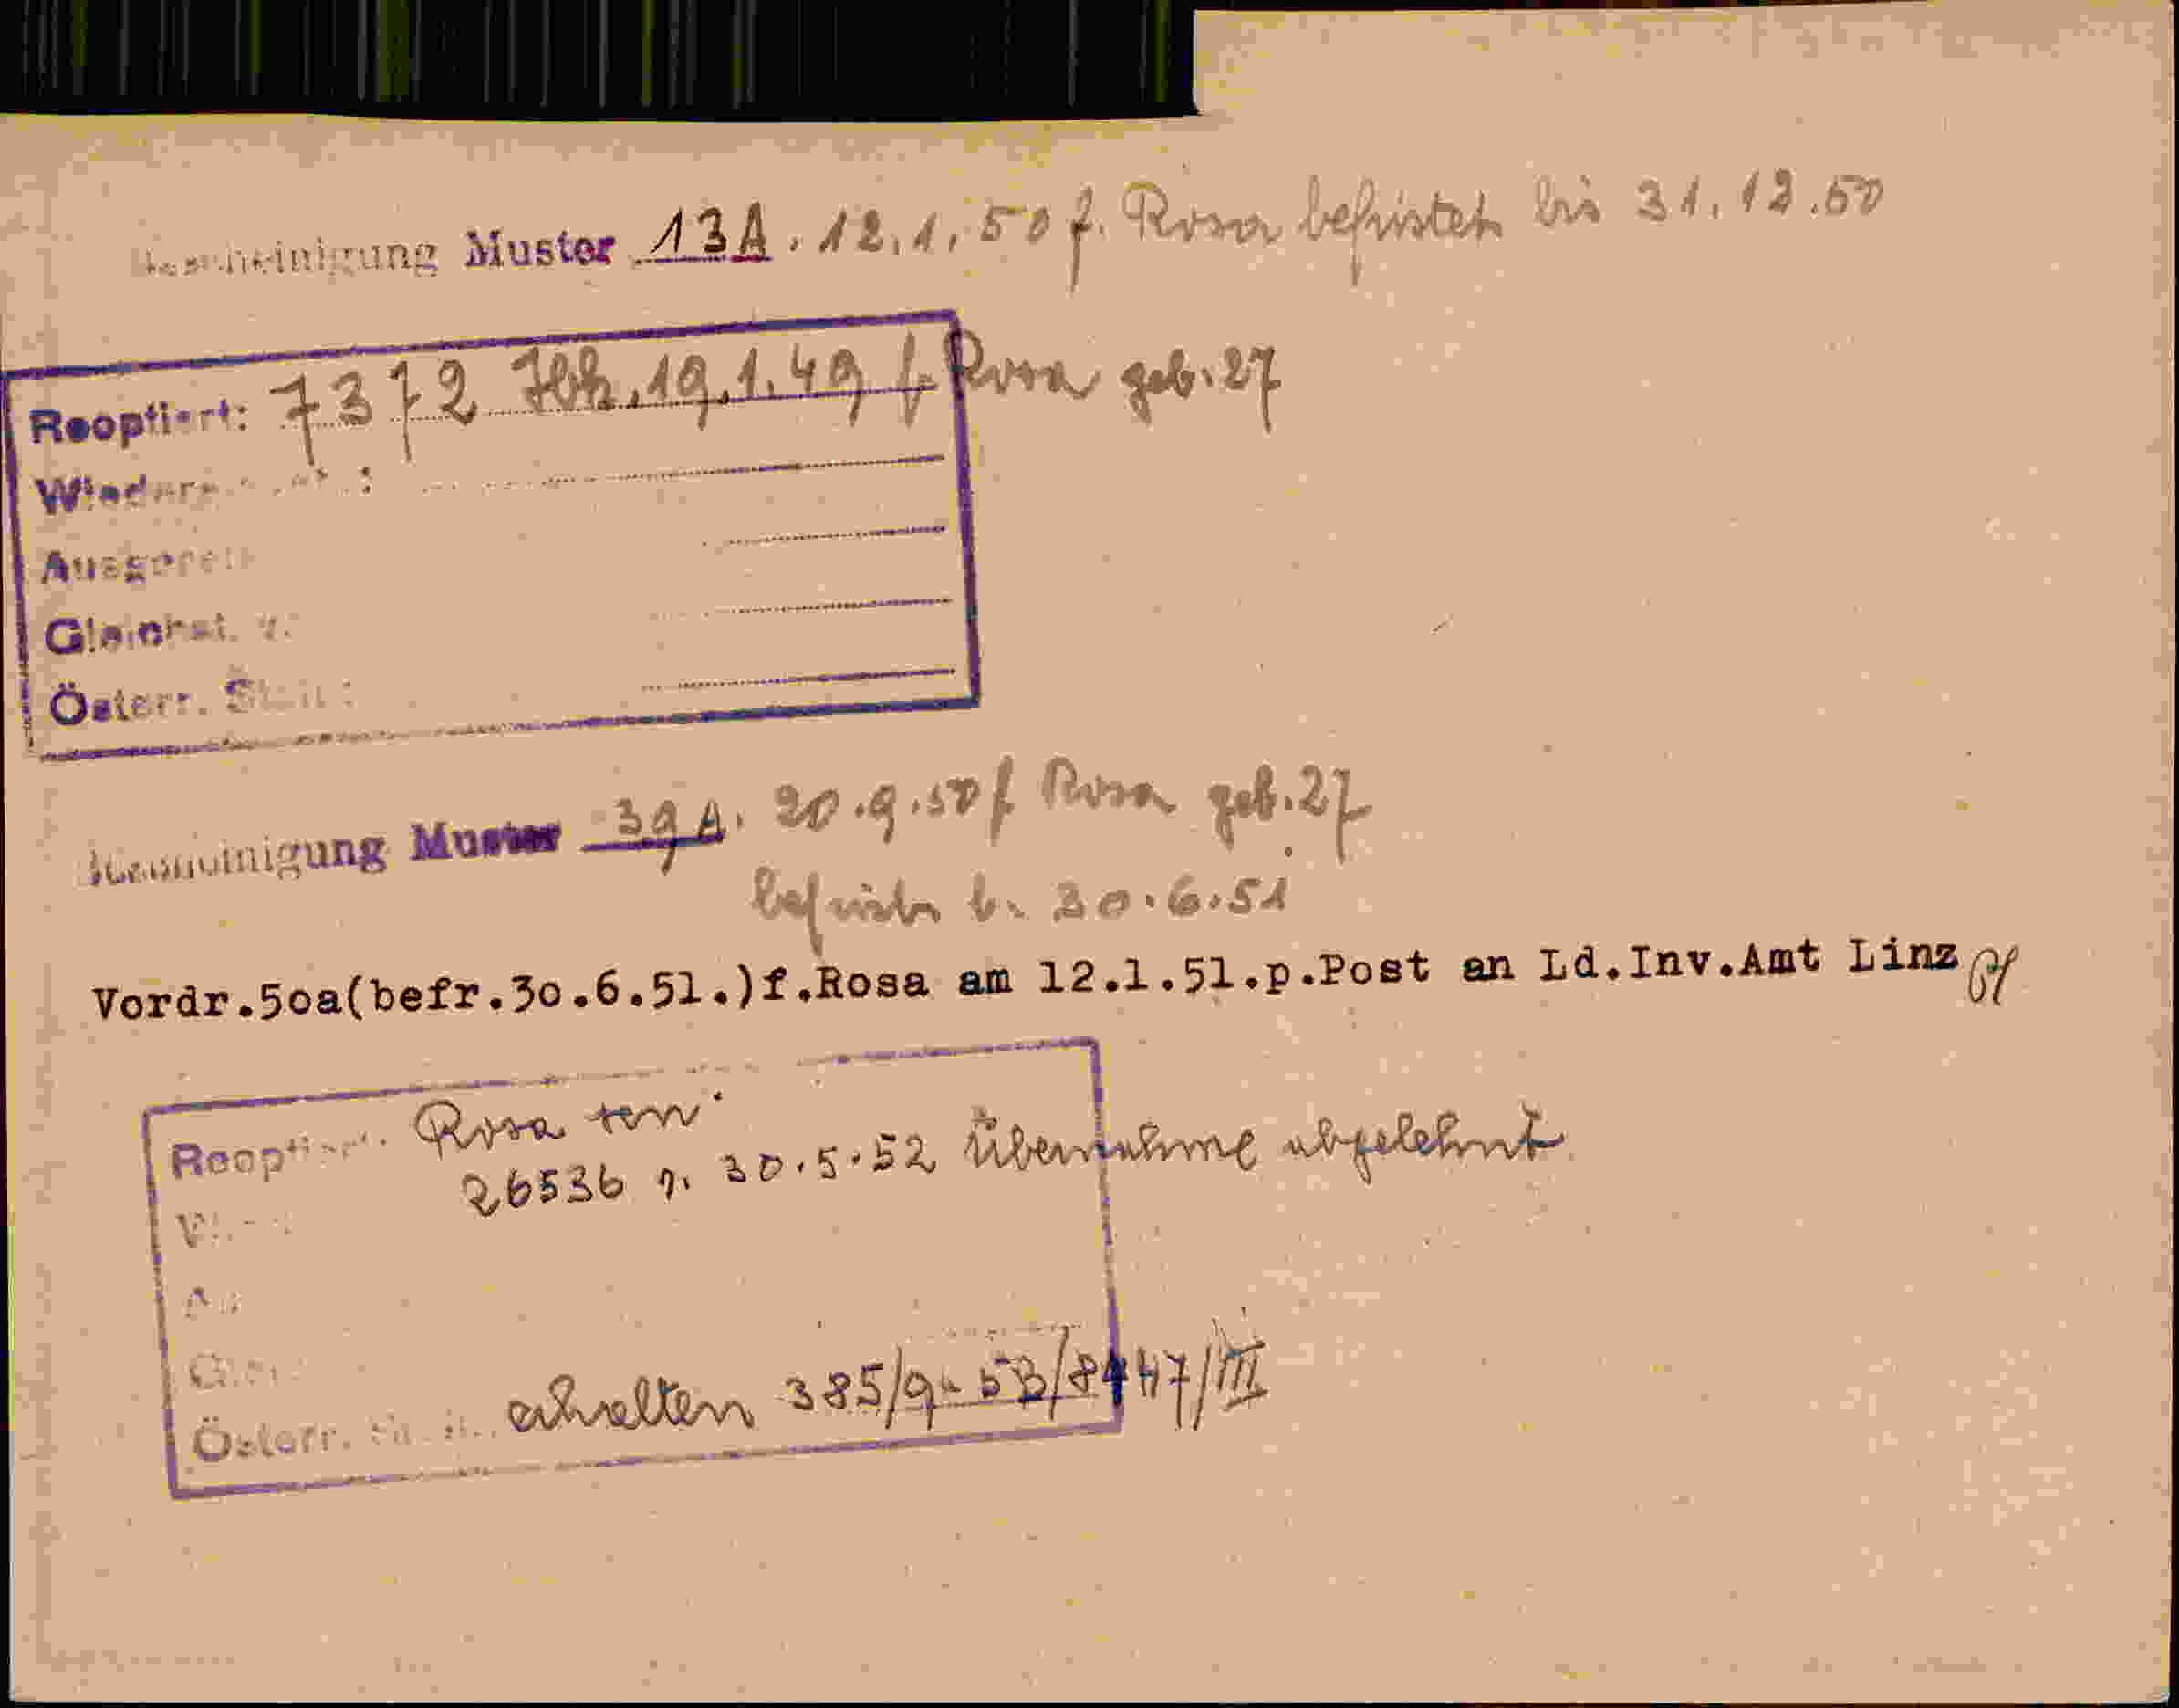 Bescheinigung Muster 13A. 12.1.50 f. Rosa befristet bis 31.12.50
Reoptiert: 7372 19.1.49 f. Rosa geb. 27
Österr.
Bescheinigung Muster 39A. 20.9.50 f Rosa geb. 27
befristet b. 30.6.51
Vordr.5oa(befr.3o.6.51.)f.Rosa am 12.1.51.p.Post an Ld.Inv.Amt Linz
Reoptiert: Rosa
26536 v. 30.5.52 Übernahme abgelehnt
Österr. erhalten 385/9-53/8447/III